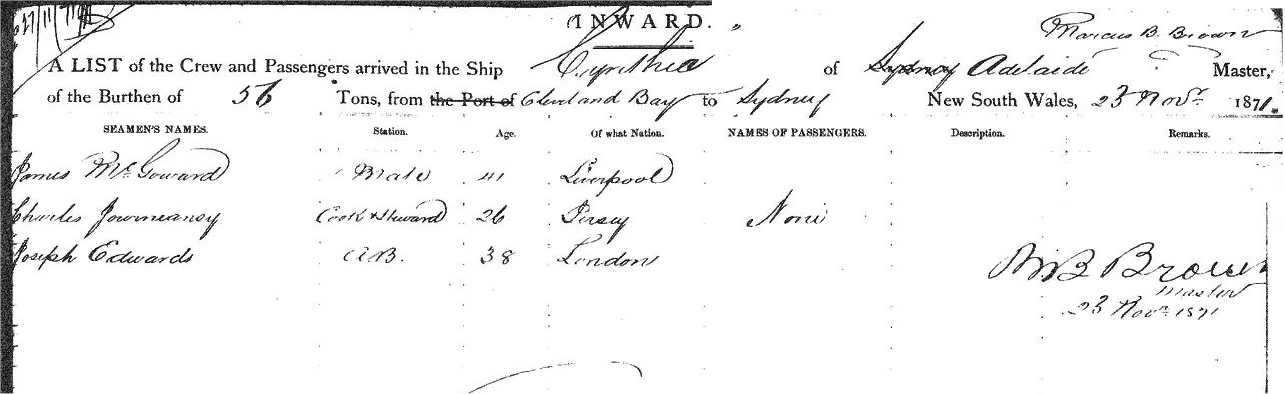 INWARD.
Marcus B. Brown
A LIST of the Crew and Passengers arrived in the Ship Cynthia of Sydney Adelaide Master,
of the Burthen of 56 Tons, from the Port of Cleveland Bay to Sydney New South Wales, 23 Novr. 1871.
SEAMEN'S NAMES. Station. Age. Of what Nation. NAMES OF PASSENGERS. Description. Remarks.
James McGoward Mate 41 Liverpool
Charles Cook & Steward 26 Jersey None
Joseph Edwards A.B. 38 London
M B Brown
Master
23 Novr 1871